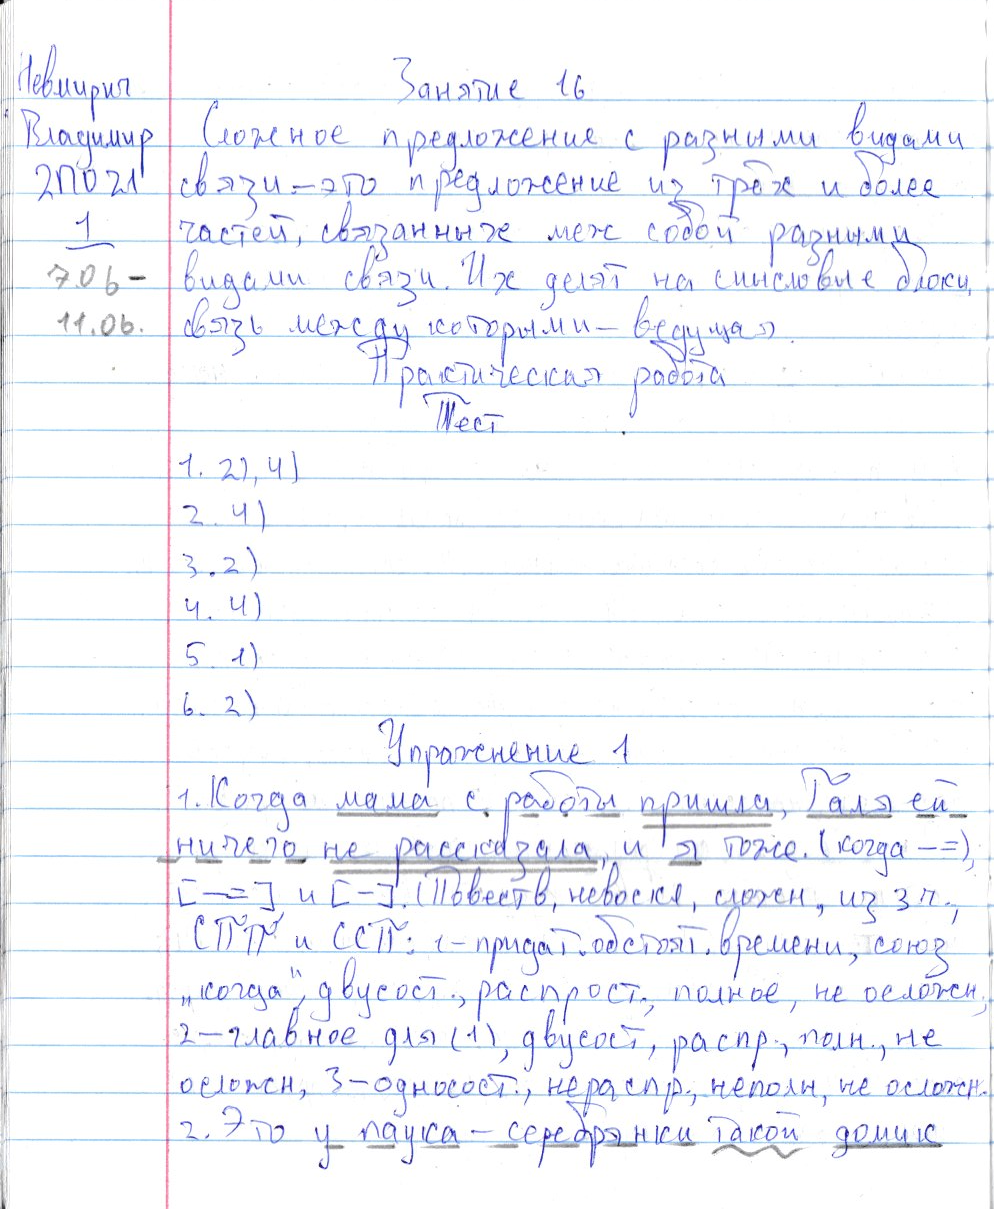 Невмирич
Владимир
2ПО21
1
7.06 –
11.06.
Занятие 16
Сложное предложение с разными видами
связи – это предложение из трёх и более
частей, связанных меж собой разными
видами связи. Их делят на смысловые блоки,
связь между которыми – ведущая.
Практическая работа
Тест
1. 2), 4)
2. 4)
3. 2)
4. 4)
5. 1)
6. 2)
Упражнение 1
1. Когда мама с работы пришла, Галя ей
ничего не рассказала, и я тоже. (когда – =),
[– =] и [–]. (Повеств, невоскл, сложн, из 3 ч.,
СПП и ССП: 1 – придат. обстоят. времени, союз
„когда“, двусост., распрост., полное, не осложн.,
2 – главное для (1), двусост, распр., полн., не
осложн, 3 – односост., нераспр., неполн, не осложн.
2. Это у паука – серебрянки такой домик